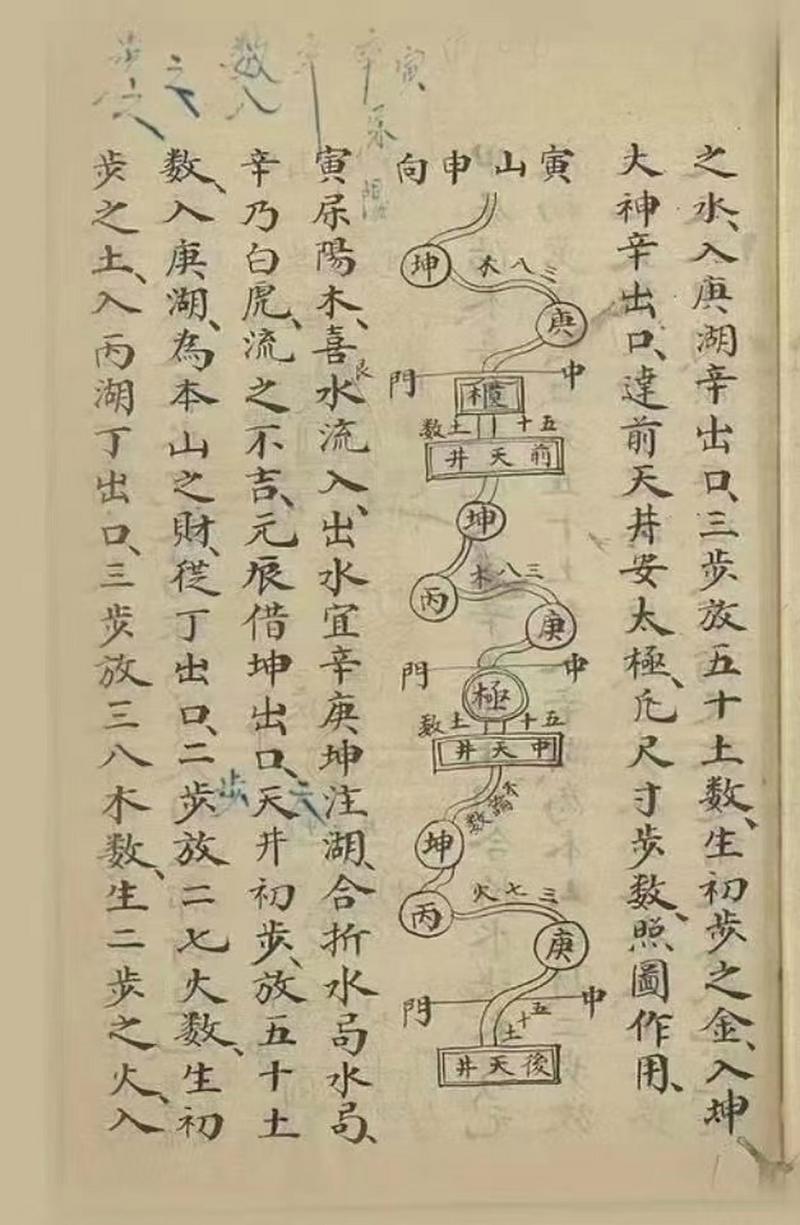 之水、入庚湖辛出口、三步放五十土數、生初步之金、入坤
大神辛出口、達前天井安太極、凡尺寸步数、照圖作用、
寅山申向
坤
三八木
庚
中門
櫃
五十土数
前天井
坤
丙
三八木
庚
中門
極
五十土数
中天井
坤
丙
三七火
庚
中門
五十土
後天井
寅尿陽木、喜水流入、出水宜辛庚坤注湖、合折水局水局、
艮
辛乃白虎、流之不吉、元辰借坤出口、天井初步、放五十土
数、入庚湖、為本山之財、從丁出口、二步放二七火数、生初
步之土、入丙湖丁出口、三步放三八木数、生二步之火、入
寅尿陽
辛
数入
之
步